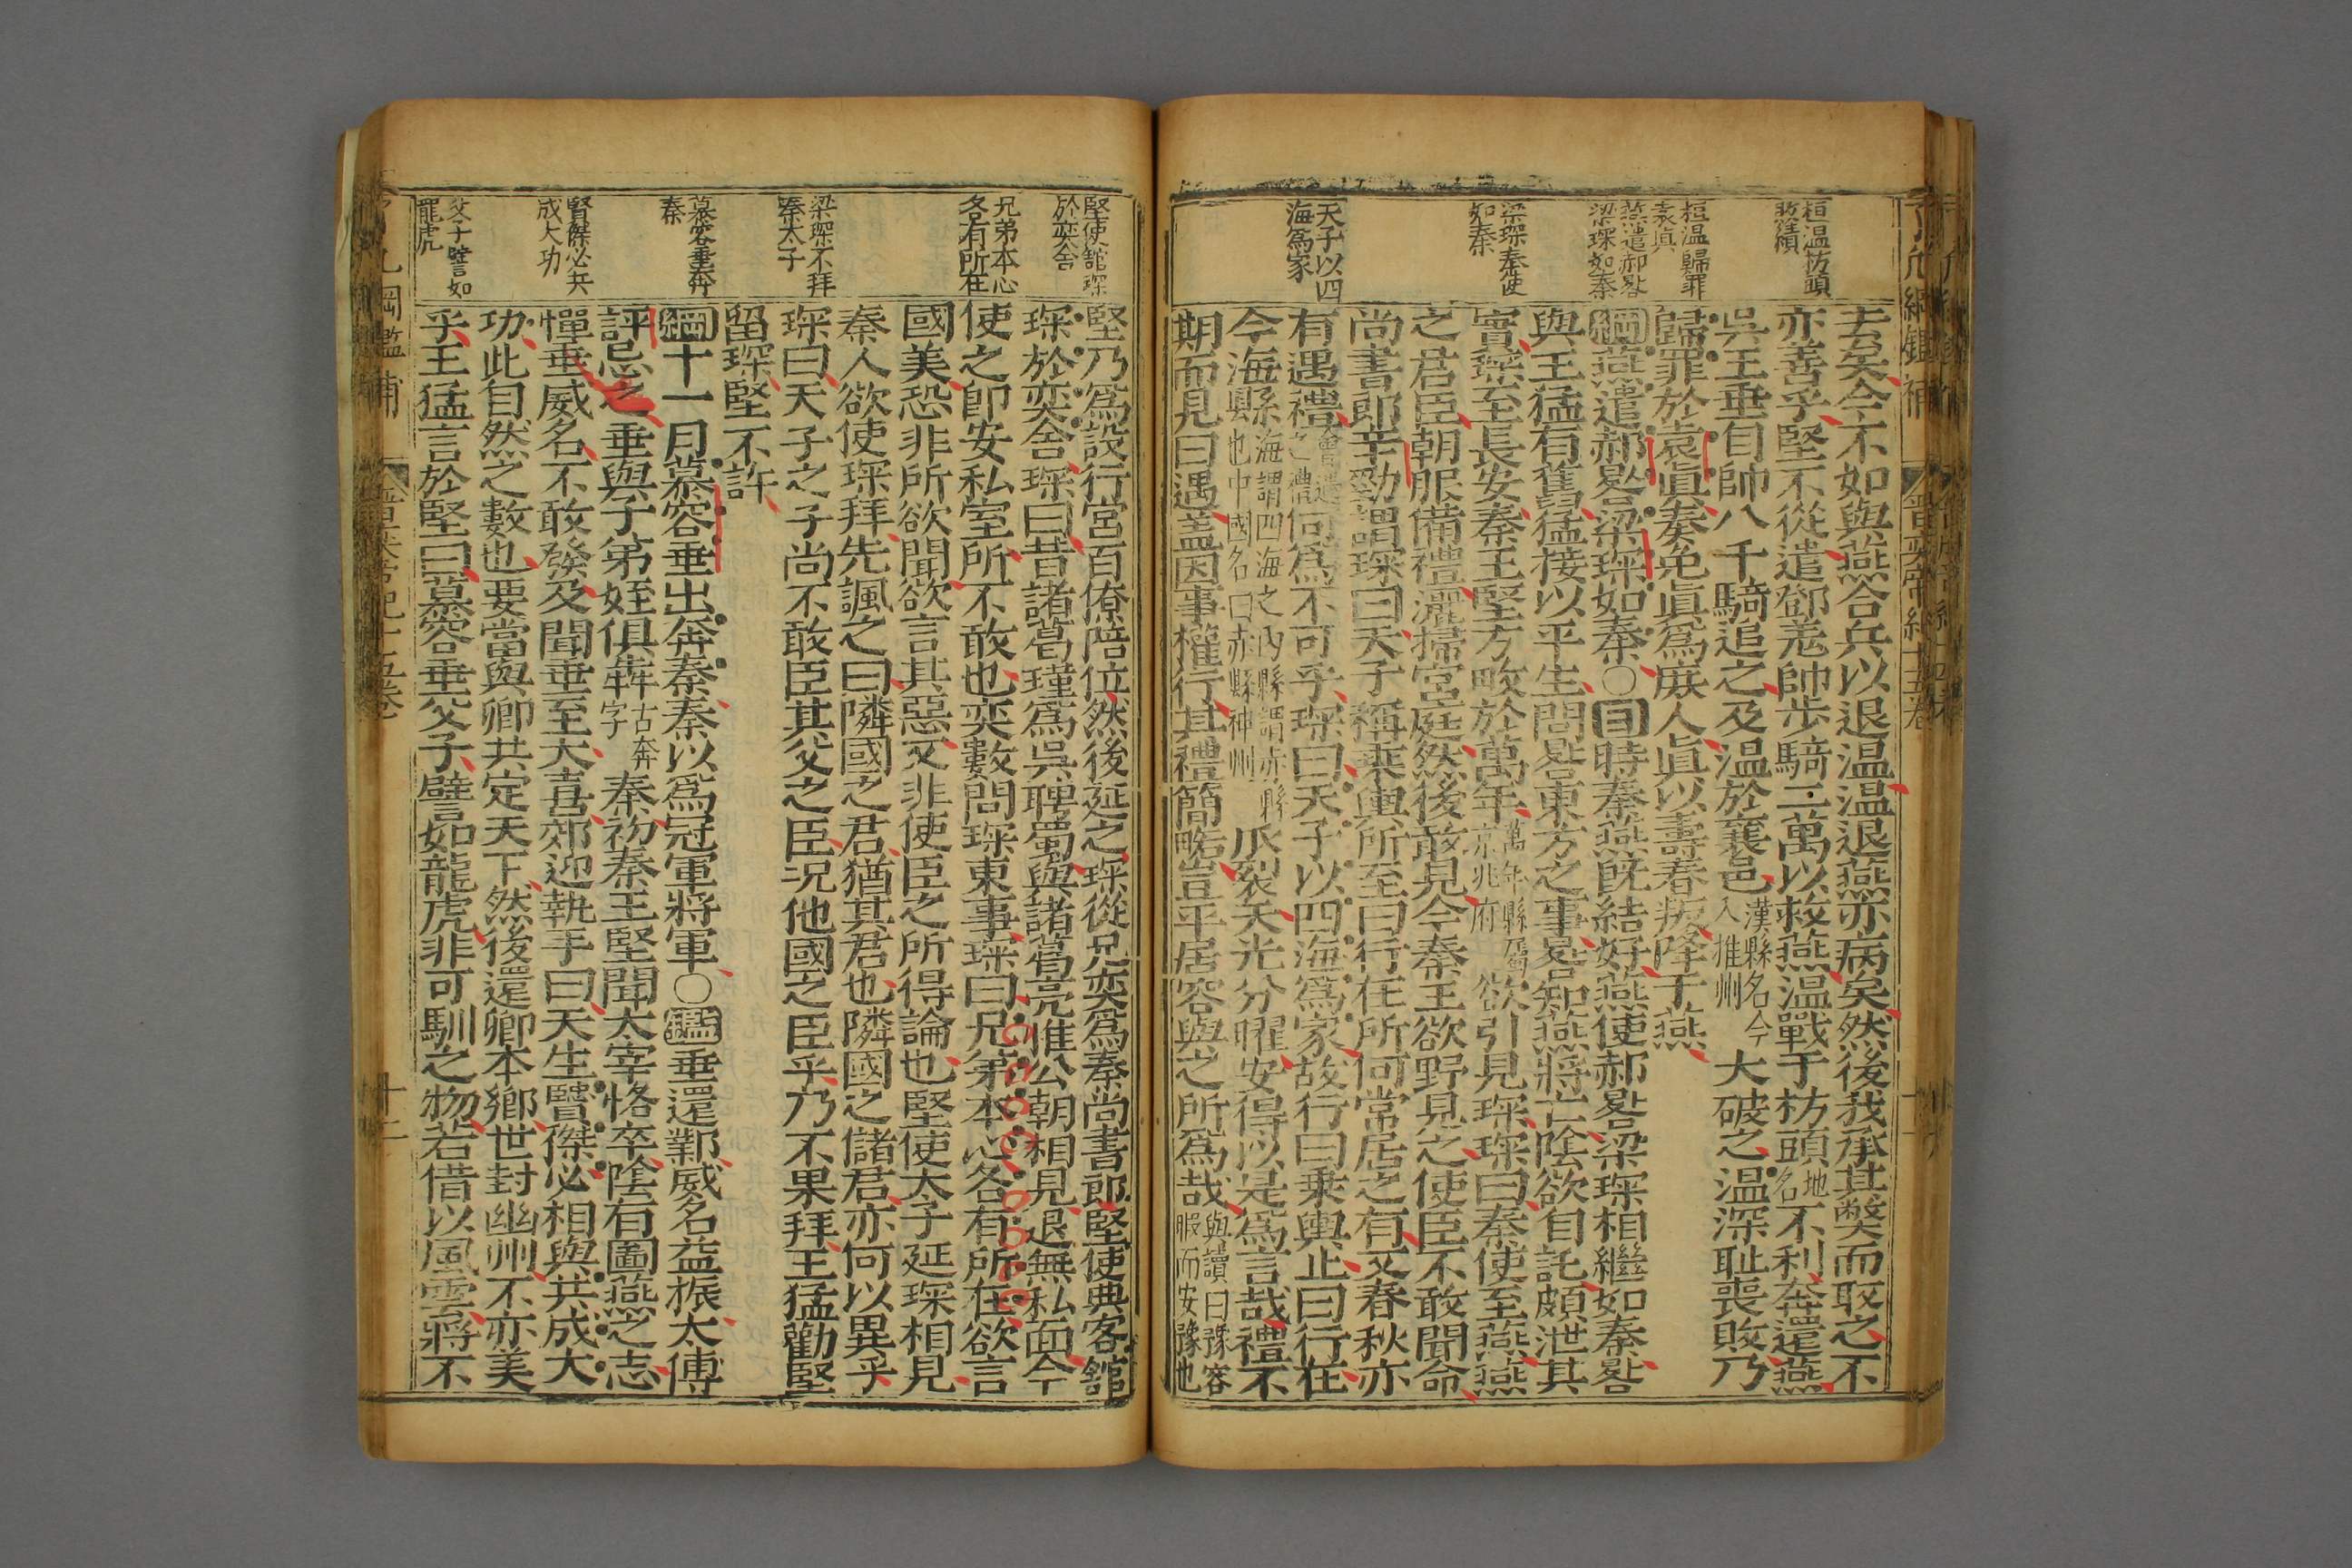 桓温枋頭
敗績
桓温歸罪
袁眞
燕遣郝晷
梁琛如秦
梁琛奉使
如秦
天子以四
海爲家
去矣今不如與燕合兵以退温温退燕亦病矣然後我承其獘而取之不
亦善乎堅不從遣鄧羗帥步騎二萬以救燕温戰于枋頭地名不利奔還燕
吳王垂自帥八千騎追之及温於襄邑漢縣名今入睢州大破之温深耻喪敗乃
歸罪於袁眞奏免眞爲庶人眞以壽春叛降于燕
綱燕遣郝晷梁琛如秦○目時秦燕旣結好燕使郝晷梁琛相繼如秦晷
與王猛有舊猛接以平生問晷東方之事晷知燕將亡陰欲自託頗泄其
實琛至長安秦王堅方畋於萬年萬年縣屬京兆府欲引見琛琛曰秦使至燕燕
之君臣朝服備禮灑掃宮庭然後敢見今秦王欲野見之使臣不敢聞命
尚書郎辛勁謂琛曰天子稱乘輿所至曰行在所何常居之有又春秋亦
有遇禮會遇之禮何爲不可乎琛曰天子以四海爲家故行曰乘輿止曰行在
今海縣海謂四海之內縣謂赤縣也中國名曰赤縣神州瓜裂天光分曜安得以是爲言哉禮不
期而見曰遇盖因事權行其禮簡畧豈平居容與之所爲哉與讀曰豫容暇而安豫也
堅使館琛
於奕舍
兄弟本心
各有所在
梁琛不拜
秦太子
慕容垂奔
秦
賢傑必共
成大功
父子譬如
龍虎
堅乃爲設行宮百僚陪位然後延之琛從兄奕爲秦尚書郎堅使典客舘
琛於奕舍琛曰昔諸葛瑾爲吳聘蜀與諸葛亮惟公朝相見退無私面今
使之卽安私室所不敢也奕數問琛東事琛曰兄弟本心各有所在欲言
國美恐非所欲聞欲言其惡又非使臣之所得論也堅使太子延琛相見
秦人欲使琛拜先諷之曰隣國之君猶其君也隣國之儲君亦何以異乎
琛曰天子之子尚不敢臣其父之臣况他國之臣乎乃不果拜王猛勸堅
留琛堅不許
綱十一月慕容垂出奔秦秦以爲冠軍將軍○鑑垂還鄴威名益振太傅
評忌之垂與子弟姪俱犇古奔字秦初秦王堅聞太宰恪卒陰有圖燕之志
憚垂威名不敢發及聞垂至大喜郊迎執手曰天生賢傑必相與共成大
功此自然之數也要當與卿共定天下然後還卿本鄉世封幽州不亦美
乎王猛言於堅曰慕容垂父子譬如龍虎非可馴之物若借以風雲將不